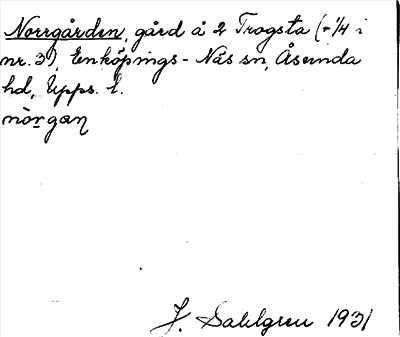 Norrgården, gård å 2 Trogsta (+ 1/4 i
nr. 3), Enköpings-Näs sn, Åsunda
hd, Upps. l.
nòrgaɳ
J. Sahlgren 1931